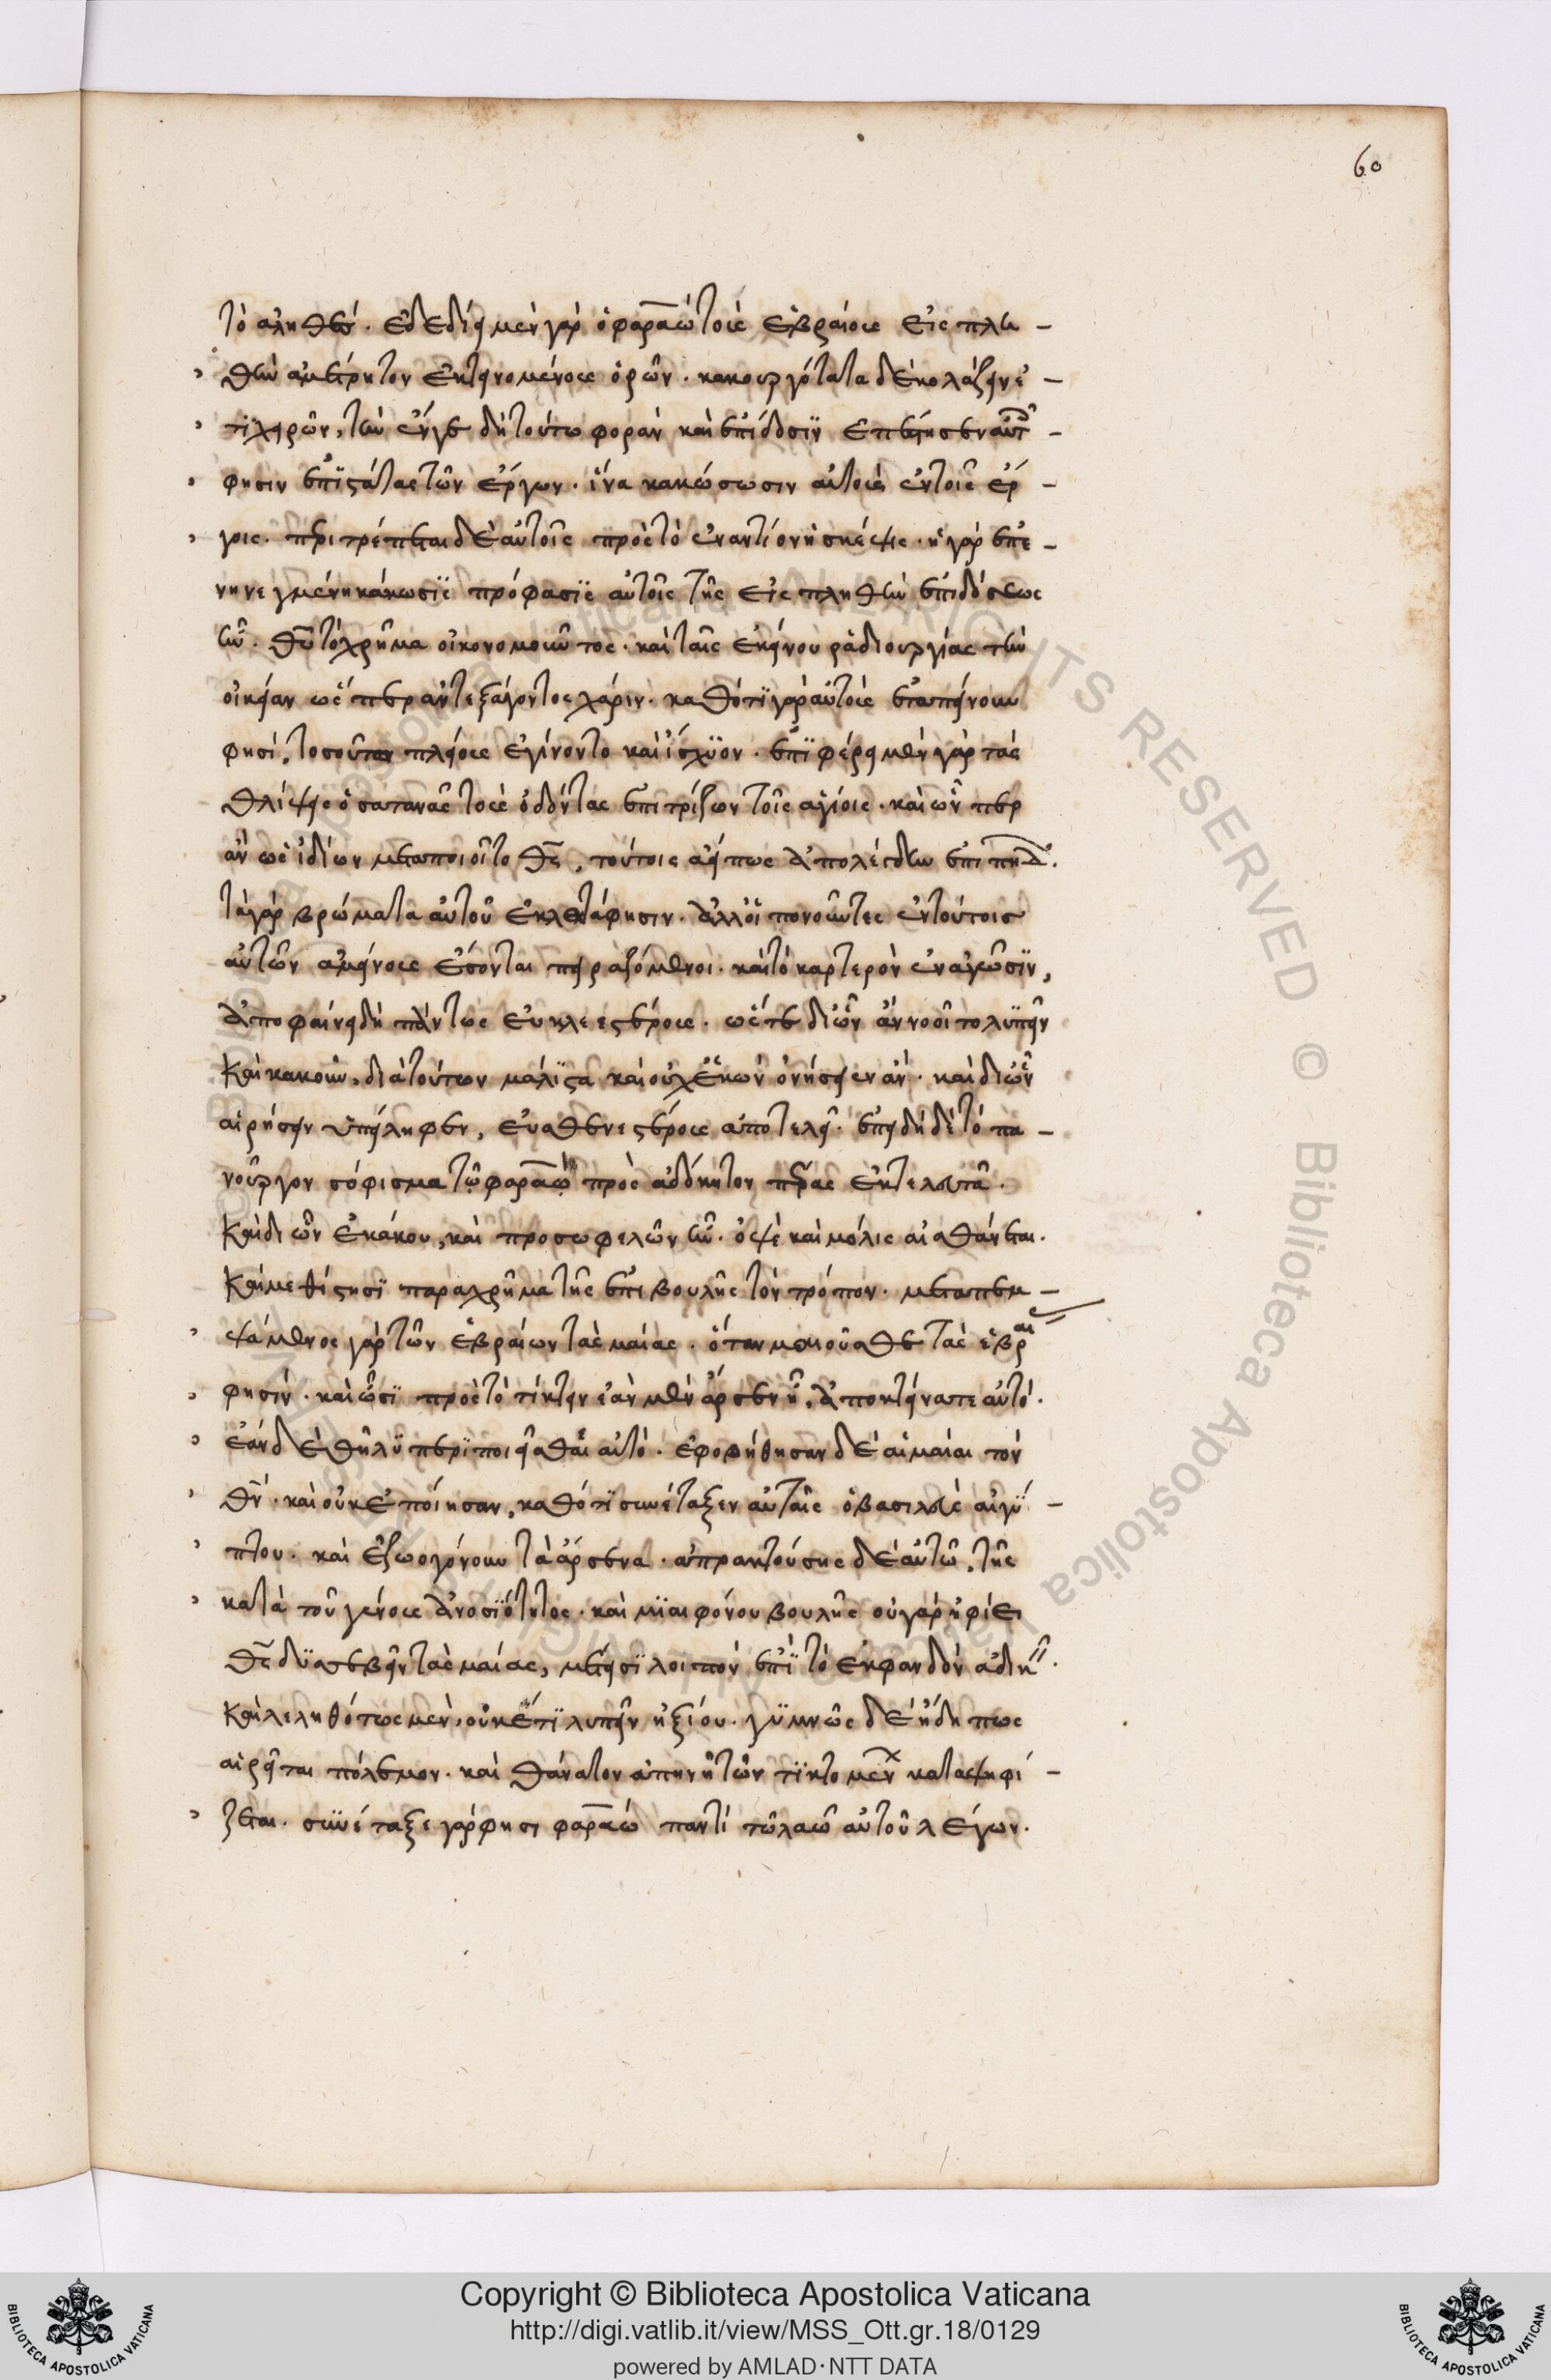 60
τὸ ἀληθές. ἐδεδίει μὲν γὰρ ὁ φαραὼ τοὺς ἑβραίους εἰς πλη -
θὺν ἀμέτρητον ἐκτεινομένους ὁρῶν. κακουργότατα δὲ κολάζειν ἐ -
πιχειρῶν, τὴν ἔν γε δὴ τούτω φορὰν καὶ ἐπίδοσϊν ἐπέστησεν αὐτοῖς
φησὶν ἐπϊστάτας τῶν ἔργων. ἵνα κακώσωσιν αὐτοὺς ἐν τοῖς ἔρ -
γοις. περιτρέπεται δὲ αὐτοῖς πρὸς τὸ ἐναντίον ἡ σκέψις. ἡ γὰρ ἐπε -
νηνεγμένη κάκωσϊς πρόφασϊς αὐτοῖς τῆς εἰς πληθὺν ἐπιδόσεως
ἦν. θεοῦ τὸ χρῆμα οἰκονομοῦντος. καὶ ταῖς ἐκείνου ῥαδιουργίαις τὴν
οἰκείαν ὥσπερ ἀντεξάγοντος χάριν. καθότϊ γὰρ αὐτοὺς ἐταπείνουν
φησί, τοσοῦτον πλείους ἐγίνοντο καὶ ἴσχϋον. ἐπϊφέρει μὲν γὰρ τὰς
θλίψεις ὁ σατανᾶς τοὺς ὀδόντας ἐπιτρίζων τοῖς ἁγίοις. καὶ ὧν περ
ἂν ὡς ἰδίων μεταποιοῖτο θς, τούτοις ἀεί πως ἀπολέσθαι ἐπιπηδᾶ.
τὰ γὰρ βρώματα αὐτοῦ ἐκλεκτά φησιν. ἀλλ' οἱ πονοῦντες ἐν τούτοις
αὐτῶν ἀμείνους ἔσονται πειραζόμενοι. καὶ τὸ καρτερὸν ἐν ἀγῶσϊν,
ἀποφαίνει δὴ πάντως εὐκλεεστέρους. ὥστε δι' ὧν ἂν νοοῖτο λϋπεῖν
καὶ κακοῦν, διὰ τούτων μάλϊστα καὶ οὐχ ἑκὼν ὀνήσειεν ἄν. καὶ δι' ὧν
αἱρήσειν ὑπείληφεν, εὐσθενεστέρους ἀποτελεῖ. ἐπειδὴ δὲ τὸ πα -
νοῦργον σόφισμα τῷ φαραὼ πρὸς ἀδόκητον πέρας ἐκτελευτᾶ.
καὶ δι' ὧν ἐκάκου, καὶ προσωφελῶν ἦν. ὀψὲ καὶ μόλις αἰσθάνεται.
καὶ μεθίστησϊ παραχρῆμα τῆς ἐπιβουλῆς τὸν τρόπον. μεταπεμ -
ψάμενος γὰρ τῶν ἑβραίων τὰς μαίας. ὅταν μαιοῦσθε τὰς ἑβραί
φησίν. καὶ ὦσϊ πρὸς τὸ τίκτειν ἐὰν μὲν ἄρσεν ἦ, ἀποκτείνατε αὐτό.
ἐὰν δὲ θῆλϋ περϊποιεῖσθαι αὐτό. ἐφοβήθησαν δὲ αἱ μαῖαι τὸν
θν. καὶ οὐκ ἐποίησαν, καθότϊ συνέταξεν αὐταῖς ὁ βασιλεὺς αἰγϋ -
πτου. καὶ ἐζωογόνουν τὰ ἄρσενα. ἀπρακτούσης δὲ αὐτῶ, τῆς
κατὰ τοῦ γένους ἀνοσϊότητος. καὶ μϊαιφόνου βουλῆς οὐ γὰρ ἠφίει
θς δϋσσεβεῖν τὰς μαίας, μέτεισϊ λοιπὸν ἐπϊ τὸ ἐκφανδὸν ἀδικεῖν.
καὶ λεληθότως μὲν, οὐκέτϊ λυπεῖν ἠξίου. γϋμνῶς δὲ ἤδη πως
αἱρεῖται πόλεμον. καὶ θάνατον ἀπηνῆ τῶν τϊκτομένων καταψηφί -
ζεται. συνέταξε γάρ φησι φαραὼ παντὶ τῶ λαῶ αὐτοῦ λέγων.
Copyright © Biblioteca Apostolica Vaticana
http://digi.vatlib.it/view/MSS_Ott.gr.18/0129
powered by AMLAD·NTT DATA